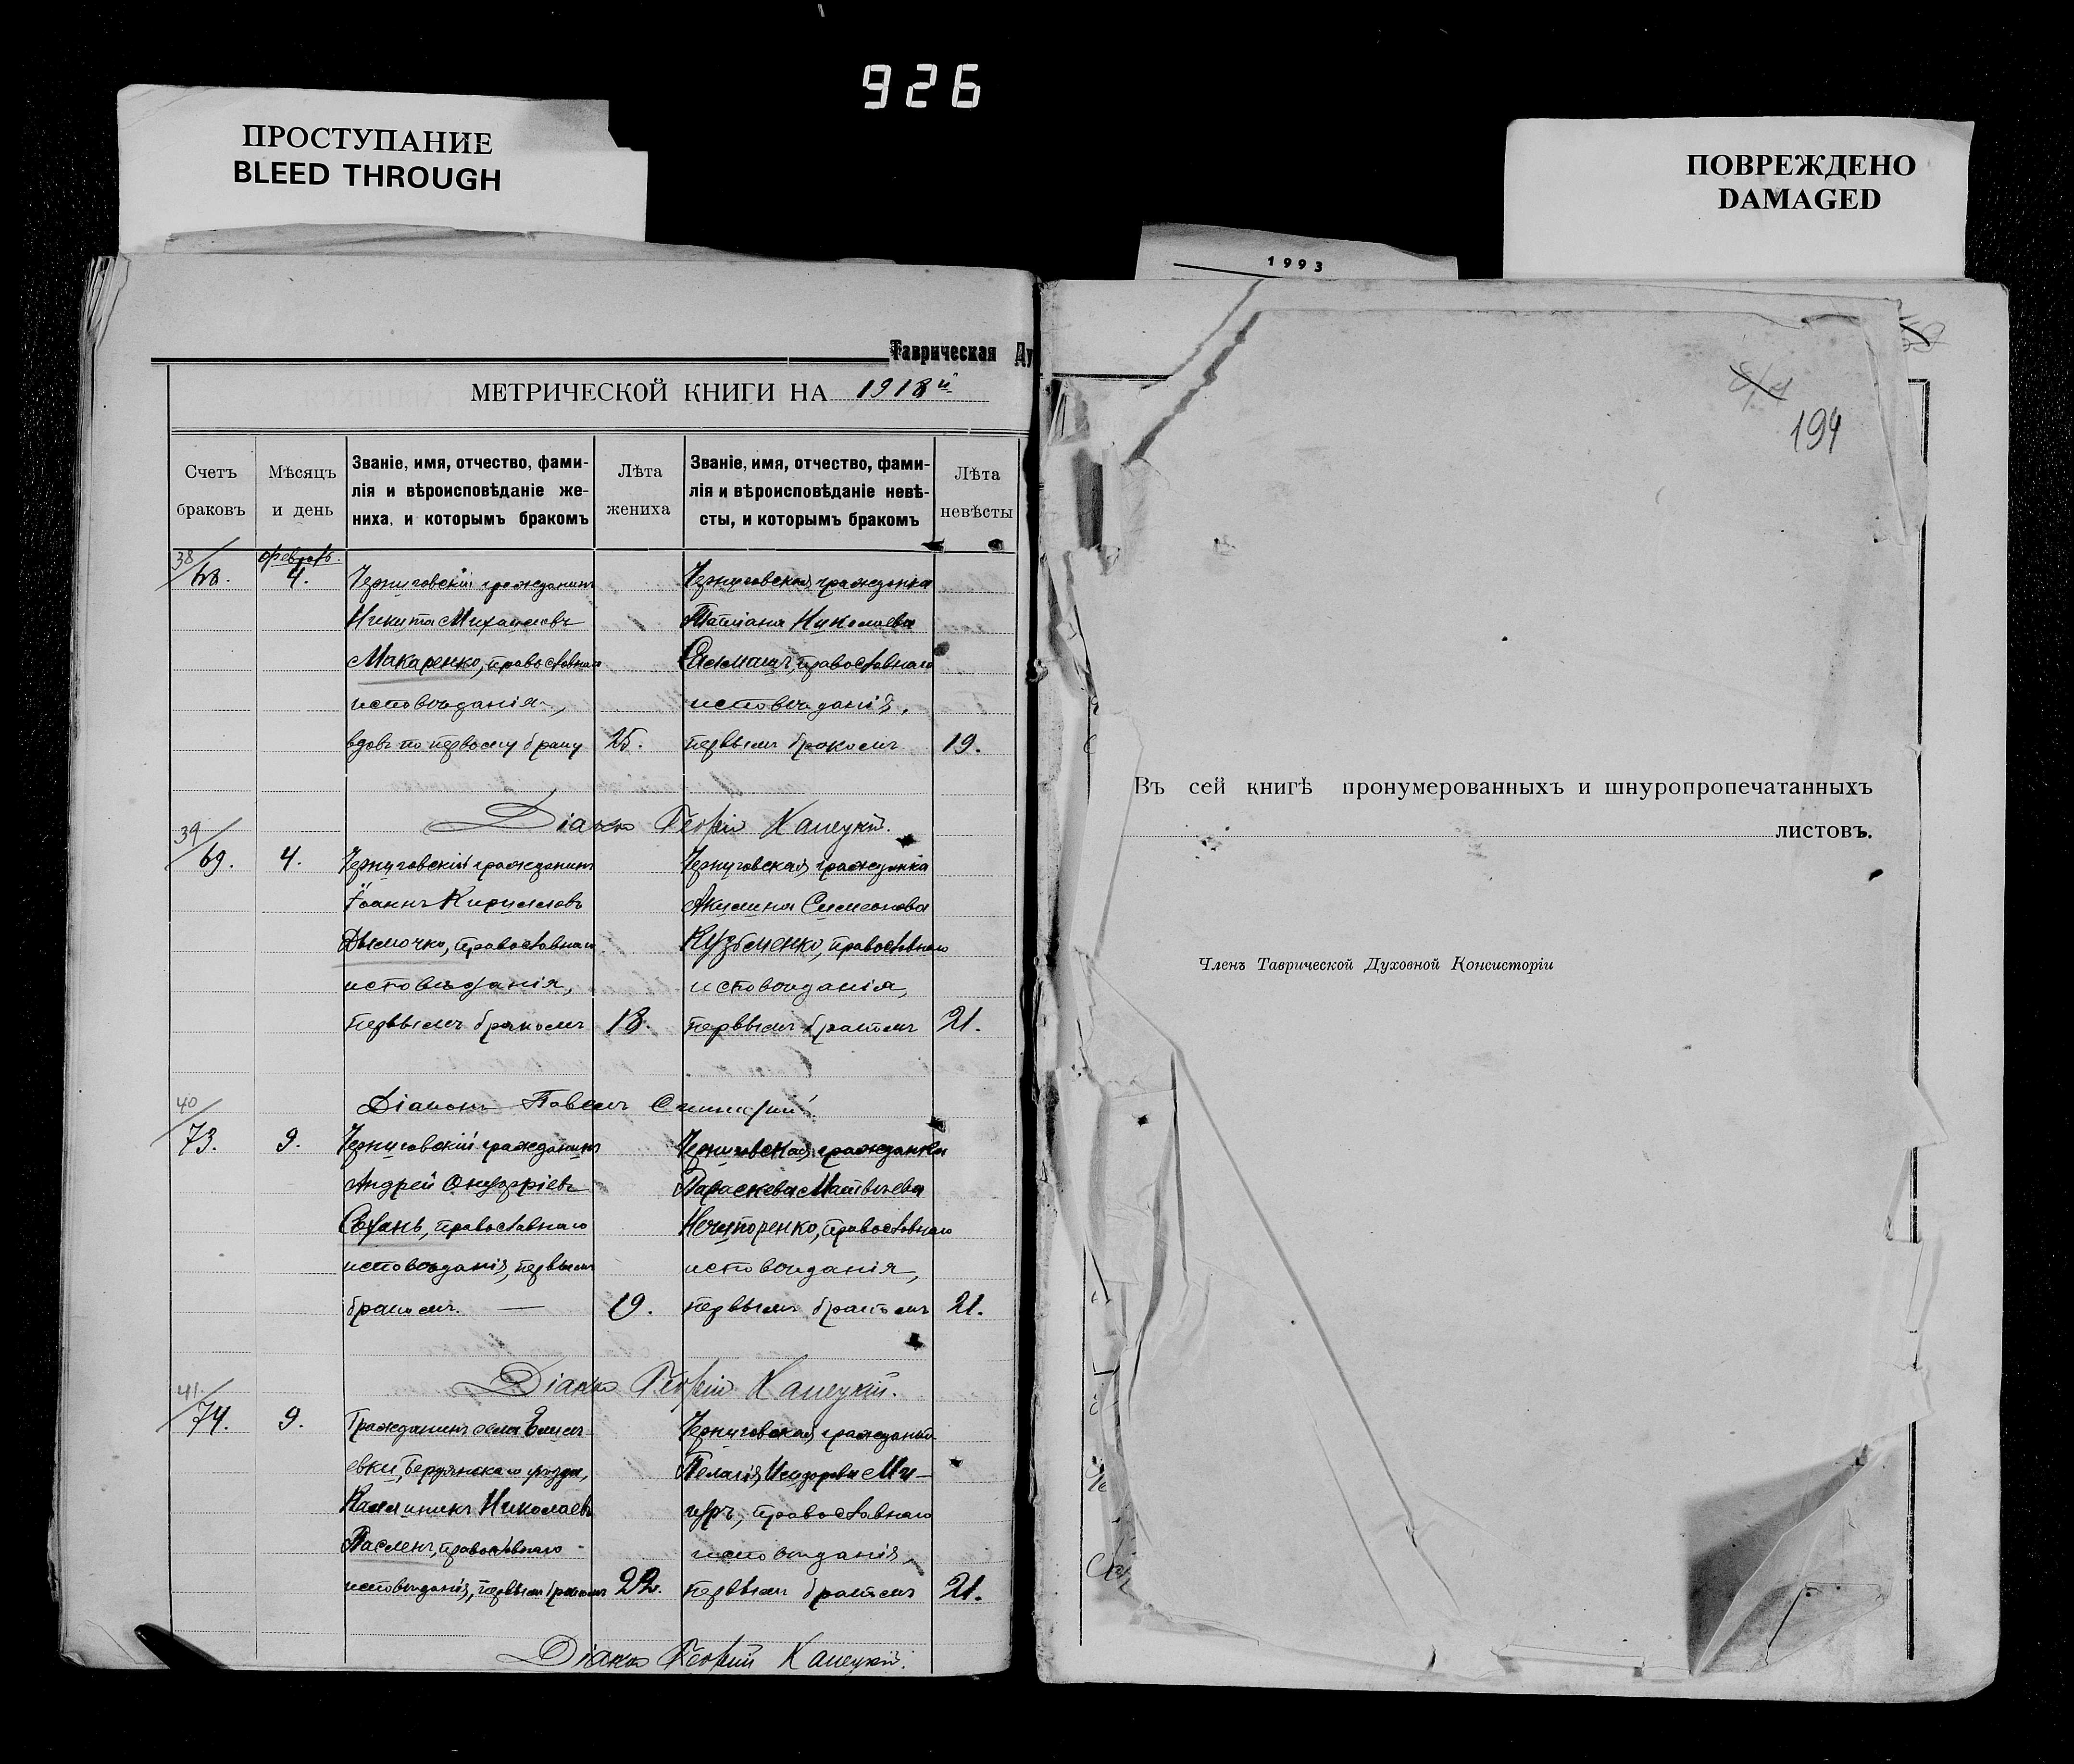 926
ПРОСТУПАНИЕ
BLEED THROUGH
ПОВРЕЖДЕНО
DAMAGED
1993
Таврическая Ду
МЕТРИЧЕСКОЙ КНИГИ НА 1918й
Счетъ браковъ
Мѣсяцъ и день
Званіе, имя, отчество, фами-
лія и вѣроисповѣданіе же-
ниха, и которымъ бракомъ
Лѣта жениха
Званіе, имя, отчество, фами-
лія и вѣроисповѣданіе невѣ-
сты, и которымъ бракомъ
Лѣта невѣсты
38
68.
4.
Черниговскій гражданинъ
Никита Михаиловъ
Макаренко, православнаго
исповѣданія,
вдовъ по первому браку
25.
Черниговская гражданка
Татіана Николаева
православнаго
исповѣданія,
первымъ бракомъ
19.
Діаконъ Георгій Капецкій.
39
69.
4.
Черниговскій гражданинъ
Іоаннъ Кирилловъ
Дымочко, православнаго
исповѣданія,
первымъ бракомъ
18.
Черниговская гражданка
Акилина Симеонова
Кузьменко, православнаго
исповѣданія,
первымъ бракомъ
21.
Діаконъ Павелъ
40
73.
9.
Черниговскій гражданинъ
Андрей Онуфріевъ
православнаго
исповѣданія, первымъ
бракомъ. —
19.
Черниговская гражданка
Параскева Матвѣева
Нечипоренко, православнаго
исповѣданія,
первымъ бракомъ
21.
Діаконъ Георгій Капецкій.
41
74.
9.
Гражданинъ села
евки, Бердянскаго уѣзда,
Каллиникъ Николаевъ
Пасленъ, православнаго
исповѣданія, первымъ бракомъ
22.
Черниговская гражданка
Пелагія Исидорова Ми-
гуръ, православнаго
исповѣданія,
первымъ бракомъ
21.
Діаконъ Георгій Капецкій.
194
Въ сей книгѣ пронумерованныхъ и шнуропропечатанныхъ
листовъ.
Членъ Таврической Духовной Консисторіи